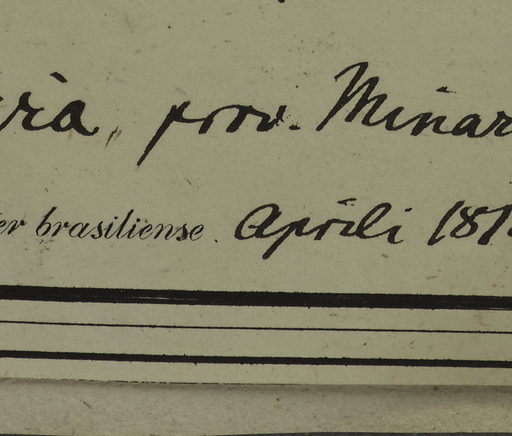 prov. Minar
er brasiliense. Aprili 181